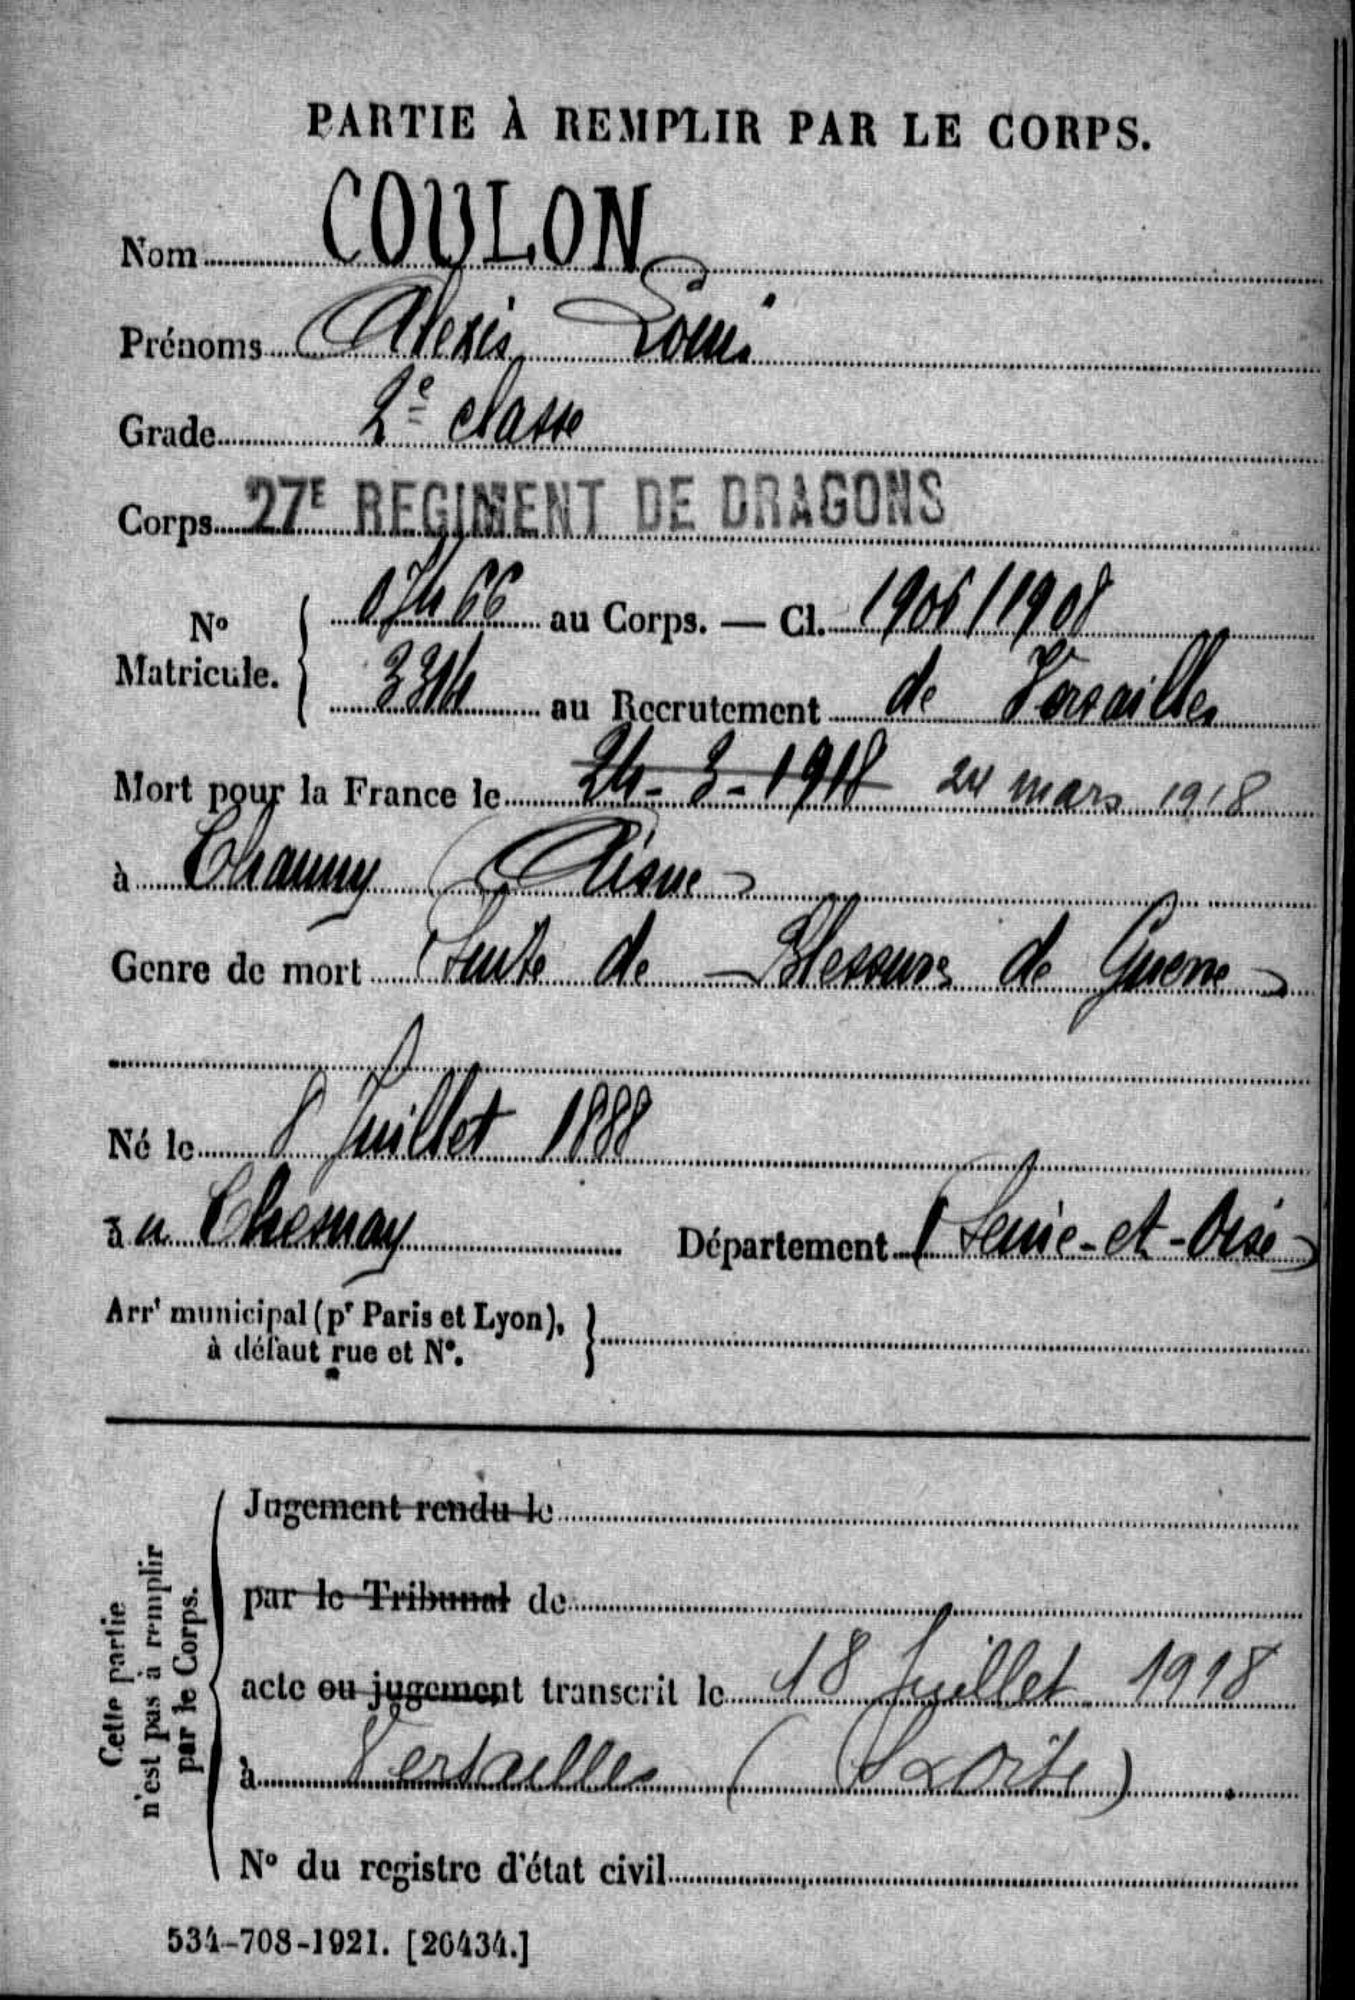 PARTIE À REMPLIR PAR LE CORPS.
Nom COULON
Prénoms Alexis Louis
Grade 2e classe
Corps 27E REGIMENT DE DRAGONS
No Matricule. au Corps. — Cl. 1908
3314 au Recrutement de Versailles
Mort pour la France le 24-3-1918 24 mars 1918
à Chauny (Aisne)
Genre de mort Suite de Blessures de Guerre
Né le 8 Juillet 1888
à u Chesnay Département (Seine-et-Oise)
Arrt municipal (pr Paris et Lyon),
à défaut rue et No.
Jugement rendu le
par le Tribunal de
acte ou jugement transcrit le 18 Juillet 1918
à Versailles (S &Oise)
No du registre d'état civil
Cette partie
n'est pas à remplir
par le Corps.
534-708-1921. [26434.]